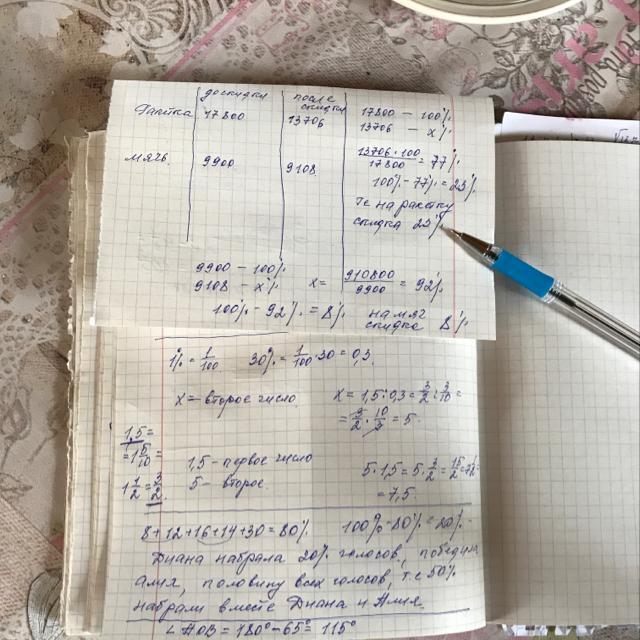 до скидки после скидки
Ракетка 17800 13706 17800 – 100%
13706 – x%
мячь 9900 9108 13706·100/17800 = 77%
100% - 77% = 23%
те на ракетку
скидка 23%
9900 – 100%
9108 – x% x = 910800/9900 = 92%
100% - 92% = 8% на мяч скидка 8%
1% = 1/100 30% = 1/100 · 30 = 0,3
x = второе число x = 1,5 : 0,3 = 3/2 : 3/10 =
= 3/2 · 10/3 = 5
1,5 =
= 1 5/10 =
1 1/2 = 3/2
1,5 – первое число 5·1,5 = 5 · 3/2 = 15/2 =
5 – второе = 7,5
8+12+16+14+30 = 80% 100% - 80% = 20%
Диана набрала 20% голосов, победила
Алия, половину всех голосов, т.е 50%
набрали вместе Диана и Алия.
∠AOB = 180° - 65° = 115°